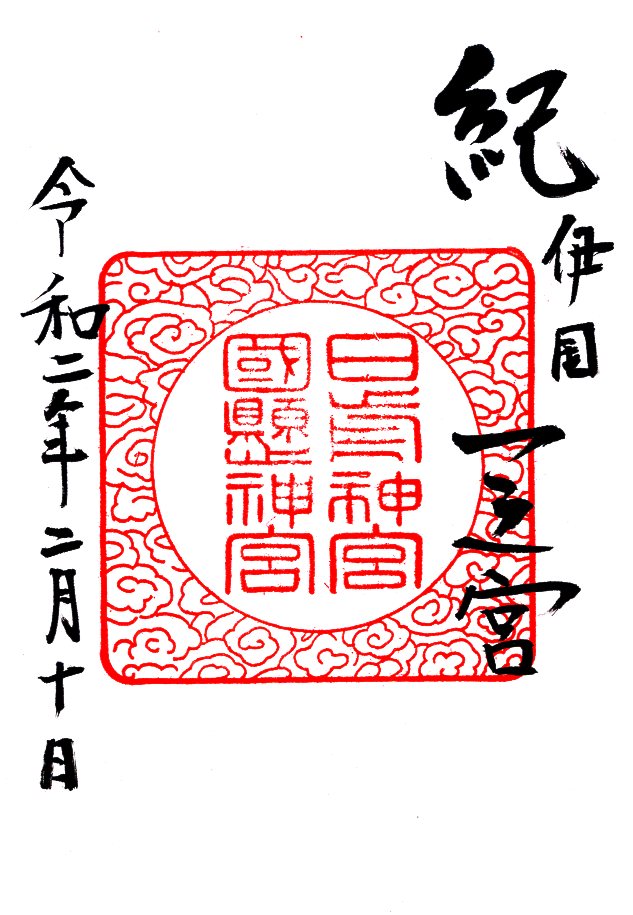 紀伊国一之宮
日前神宮
國懸神宮
令和二年二月十日